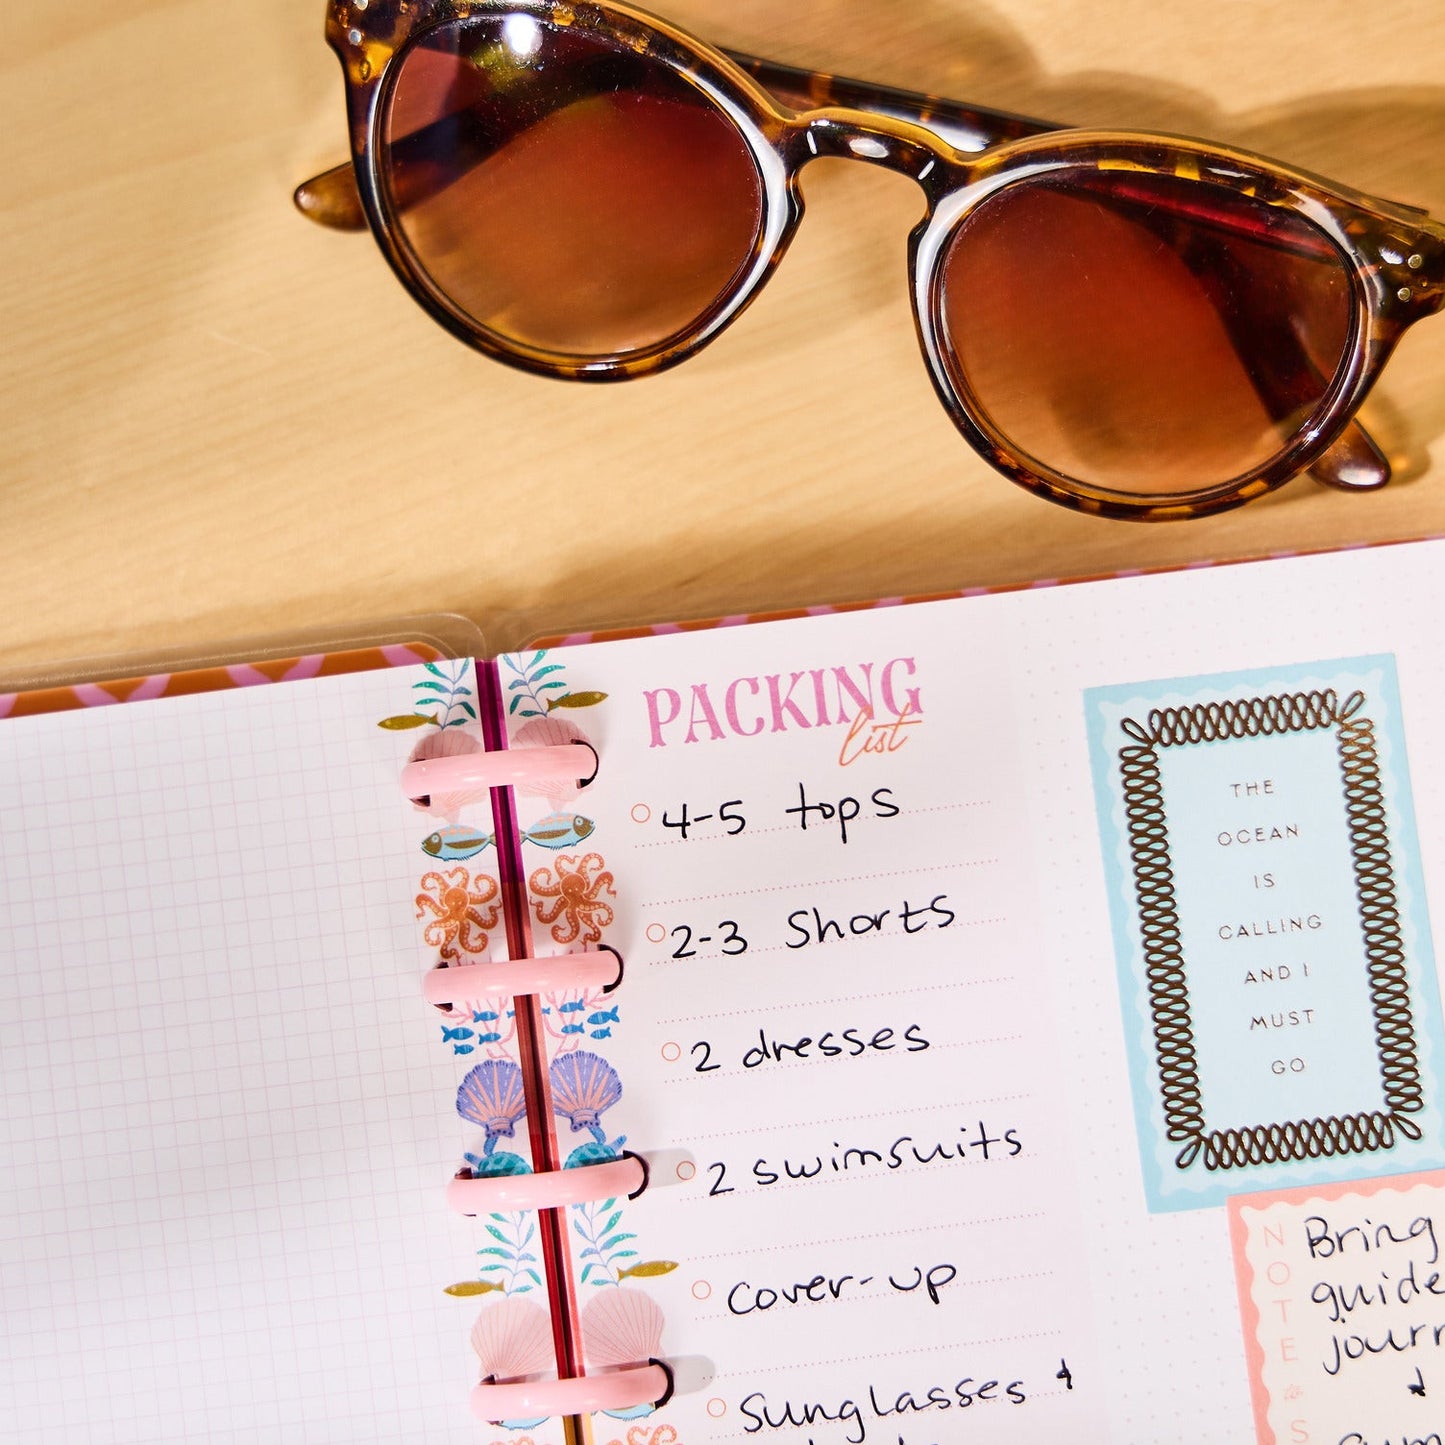 PACKING
list
4-5 tops
2-3 Shorts
2 dresses
2 swimsuits
Cover-up
Sunglasses &
THE
OCEAN
IS
CALLING
AND I
MUST
GO
NOTES
Bring
guide
journ
&